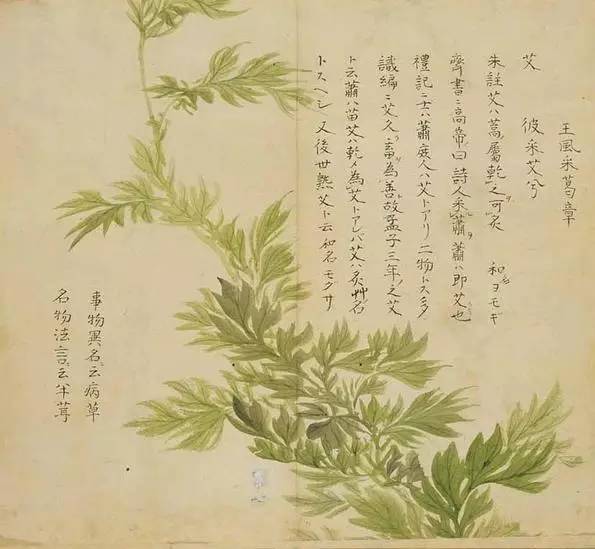 王風采葛章
彼采艾兮
艾　和ヨモギ
朱註艾ハ蒿属乾之可炙
齊書ニ高帝曰詩人采蕭蕭ハ即艾也
禮記ニ士ハ蕭庶人ハ艾トアリ二物トス多
識編ニ艾久畜為善故孟子三年之艾
ト云蕭ハ苗艾ハ乾メ為艾トアレバ艾ハ炙艸名
トスヘシ又後世熟艾ト云和名モグサ
事物異名云病草
名物法言云半茸